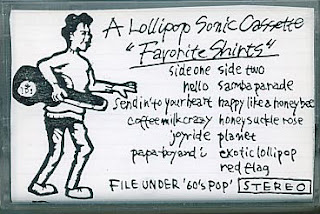 A Lollipop Sonic Cassette
"Favorite Shirts"
side one side two
hello samba parade
sendin' to your heart happy like a honey bee
coffee milk crazy honey suckle rose
joyride planet
papa boy and i exotic lollipop
red flag
FILE UNDER '60's POP' STEREO